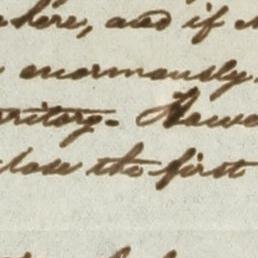 here, and if
enormously
ritory. Howe
close the first